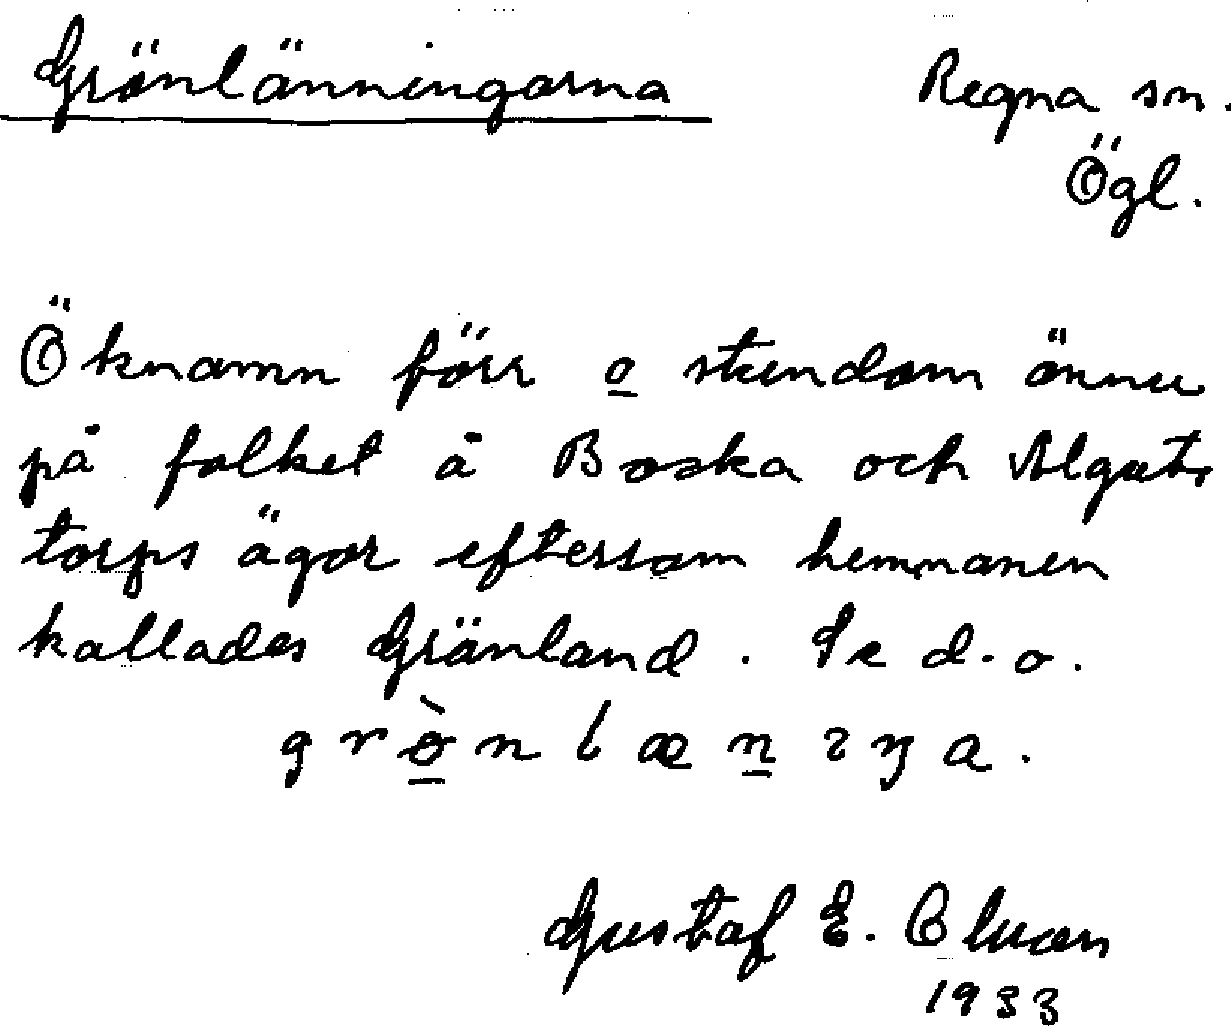 Grönlänningarna Regna sn.
Ögl.
Öknamn förr o stundom ännu
på folket å Boska och Alguts
torps ägor eftersom hemmanen
kallades Grönland. Se d.o.